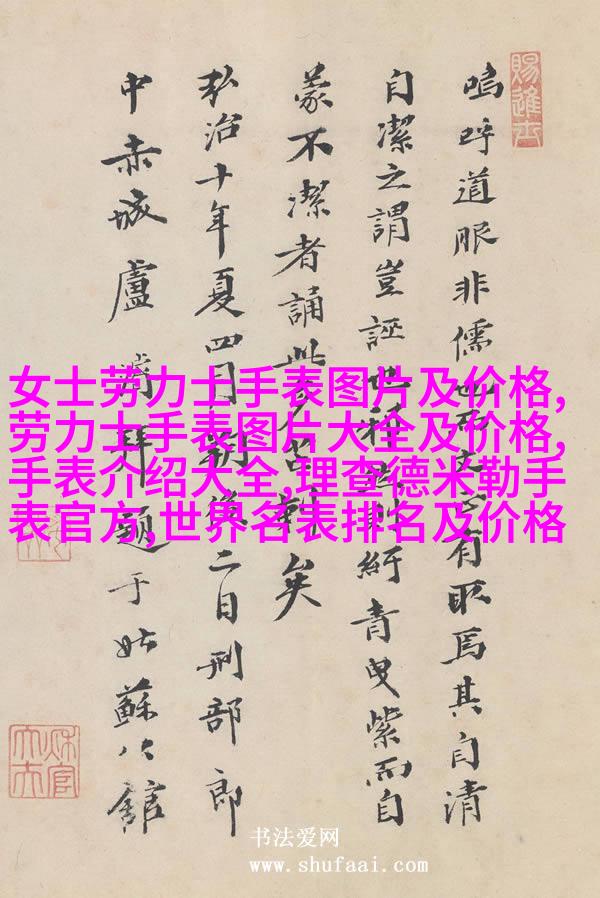 賜進士
嗚呼道服非儒也文正有取焉其自清
自潔之謂豈誣也則紆青曳紫而自
蒙不潔者誦此矣
弘治十年夏四月朔後二日刑部郎
中赤城盧拜題于姑蘇公館
女士劳力士手表图片及价格,
劳力士手表图片大全及价格,
手表介绍大全,理查德米勒手
表官方,世界名表排名及价格
书法爱网
www.shufaai.com